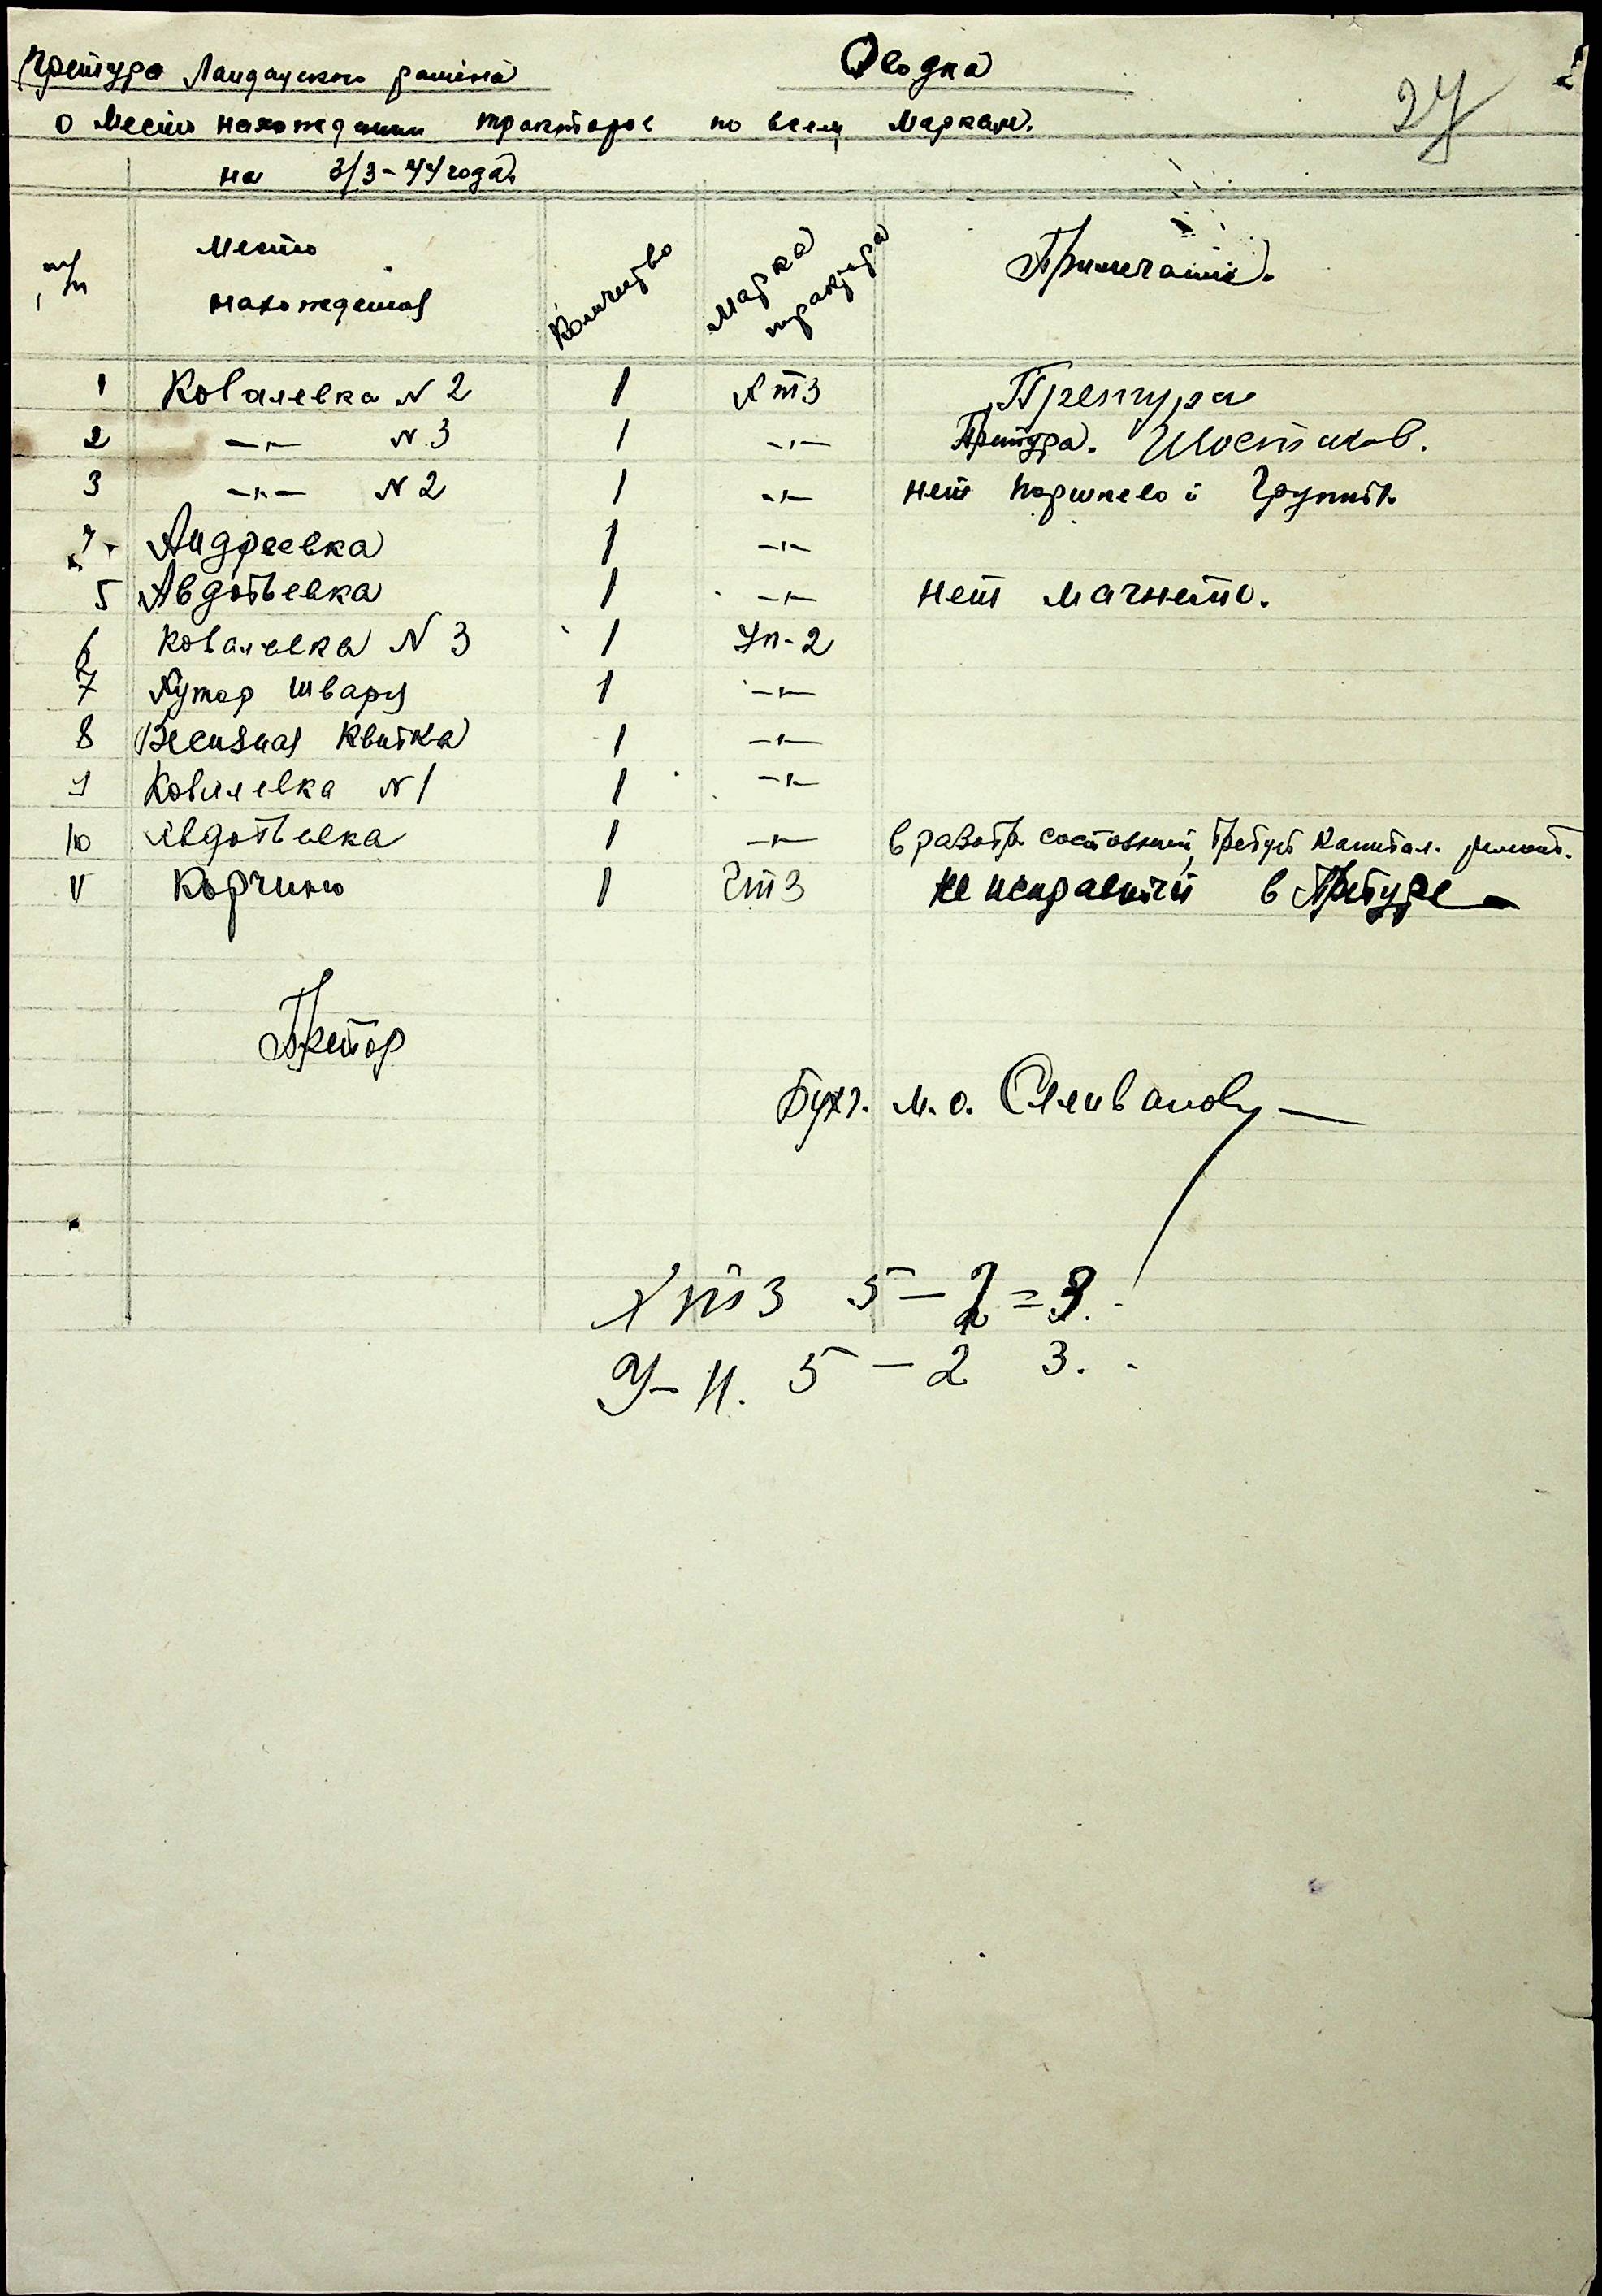 Претура Ландауского района
Сводка
27
о Место нахождении тракторов по всем Маркам.
на 3/3-44 года.
п/п Место нахождения Количество Марка трактора Примечание.
1 Ковалевка N 2 1 ХТЗ Претура
2 -"- N 3 1 -"- Претура. Шостаков.
3 -"- N 2 1 -"- нет поршневой группы.
4 Андреевка 1 -"-
5 Авдотьевка 1 -"- нет магнето.
6 Ковалевка N 3 1 Ун-2
7 Хутор Шварц 1 -"-
8 Весизная Квитка 1 -"-
9 Ковалевка N 1 1 -"-
10 Авдотьевка 1 -"- в разобр. состоянии, требует капитал. ремонт.
11 Корчино 1 ЧТЗ Не исправный в Претуре
Претор
Бухг. м.о. Селиванов
ХТЗ 5 - 2 = 3.
У-Н. 5 - 2 3.